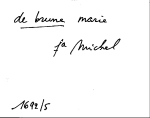 de brume marie
ja Michel
1692/5